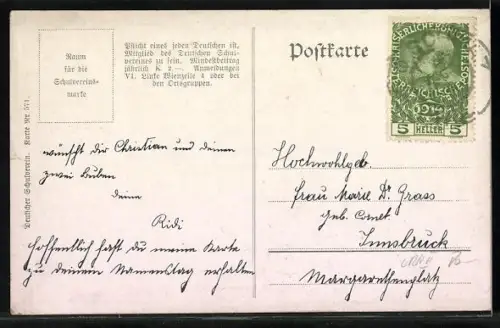 Raum
für die
Schulvereins-
marke
Pflicht eines jeden Deutschen ist,
Mitglied des Deutschen Schul-
vereines zu sein. Mindestbeitrag
jährlich K 2.—. Anmeldungen
VI. Linke Wienzeile 4 oder bei
den Ortsgruppen.
Deutscher Schulverein. Karte Nr
wünscht dir Christian und deinen
zwei Buben
deine
Ridi
Hoffentlich hast du meine Karte
zu deinem Namenstag erhalten
Postkarte
1914
5 HELLER 5
Hochwohlgeb.
Frau Marie Dr. Grass
geb.
Innsbruck
Margarethenplatz